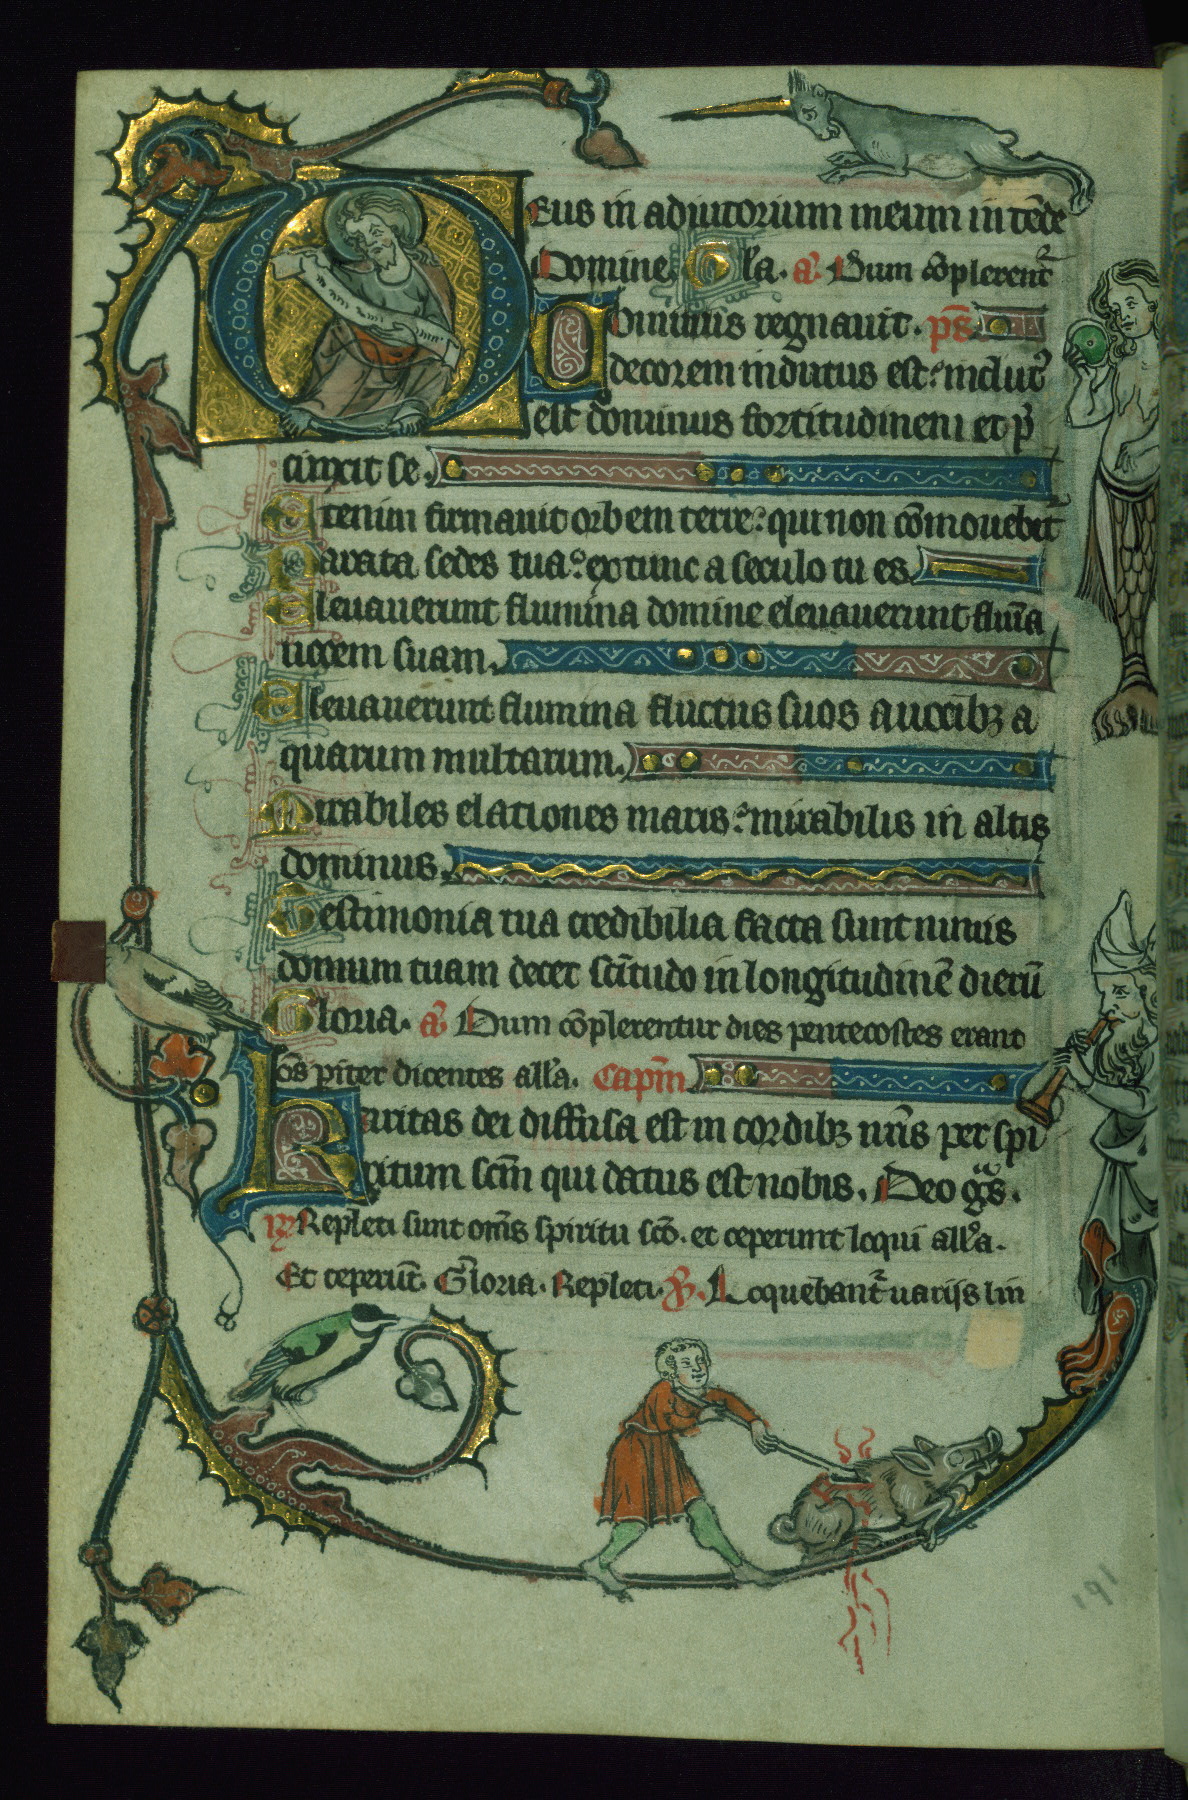 Deus in adiutorium meum intēde
Domine. Gl̄a. añ. Dum cōplerent᷑
Dominus regnauit. ps̄.
decorem indutus est: indut᷑
est dominus fortitudinem et p̄
cinxit se.
Etenim firmauit orbem terre: qui non cōmouebit᷑
Parata sedes tua: ex tunc a seculo tu es
Eleuauerunt flumina domine eleuauerunt flum̄a
uocem suam.
Eleuauerunt flumina fluctus suos a uocibꝫ a
quarum multarum.
Mirabiles elationes maris: mirabilis in altis
dominus.
Testimonia tua credibilia facta sunt nimis
domum tuam decet sc̄itudo in longitudinē dierū
Gloria. añ. Dum cōplerentur dies pentecostes erant
oē̄s pīter dicentes all'a. Capm̄
Karitas dei diffusa est in cordibꝫ nr̄is per spi
ritum scm̄ qui datus est nobis. Deo gͣs.
℟ Repleti sunt om̄s spiritu sc̄o. et ceperunt loqui all'a.
Et ceperūt. Gloria. Repleti. ℣. Loquebant᷑ uarijs lin
191